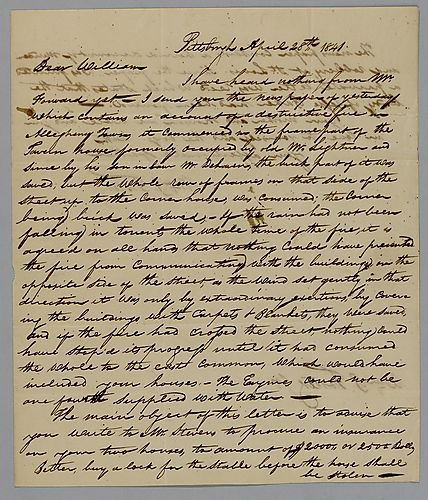 Pittsburgh April 28th 1841.
Dear William
I have heard nothing from Mr
Forward yet — I send you the newspaper of yesterday
which contains an account of a destructive fire in
Allegheny Town, it commenced in the frame part of the
Tavern house formerly occupied by old Mr
since by his son in law Mr the brick part of it was
saved, but the whole row of frames on that side of the
street up to the Corner house was consumed, the Corner
being brick was saved — If the rain had not been
falling in torrents the whole time of the fire, it is
agreed on all hands that nothing could have prevented
the fire from communicating with the buildings on the
opposite side of the street as the wind set gently in that
direction it was only by extraordinary exertions, by Cover
ing the buildings with Carpets & Blankets, they were saved,
and if the fire had crossed the street nothing could
have stop'd its progress until it had consumed
the whole to the east Common, which would have
included your houses — the Engines could not be
one fourth supplied with water —
The main object of this letter is to advise that
you write to Mr Stevens to procure an insurance
on your two houses to amount of $2000, or 2500
Better, buy a lock for the stable before the horse shall
be stolen —